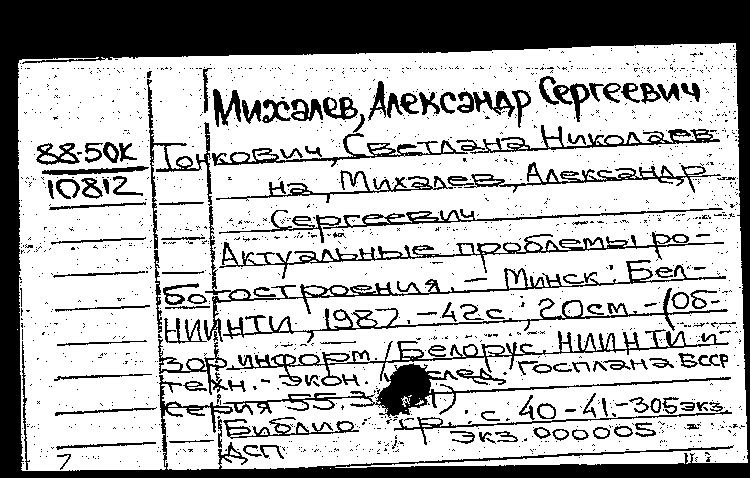 Михалев, Александр Сергеевич
88-50К
10812
Тонкович, Светлана Николаев
на, Михалев, Александр
Сергеевич
Актуальные проблемы ро-
ботостроения. – Минск: Бел-
НИИНТИ, 1987. – 42с.; 20см. – (Об-
зор. информ. / Белорус. НИИНТИ и
техн.-экон. Госплана БССР
серия 55.
Библио гр.: с. 40-41. – 305 экз.
экз. 000005
ДСП